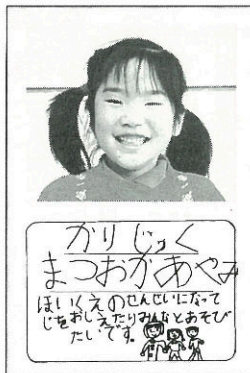 かりじゅく
まつおかあやみ
ほいくえのせんせいになって
じをおしえたりみんなとあそび
たいです。